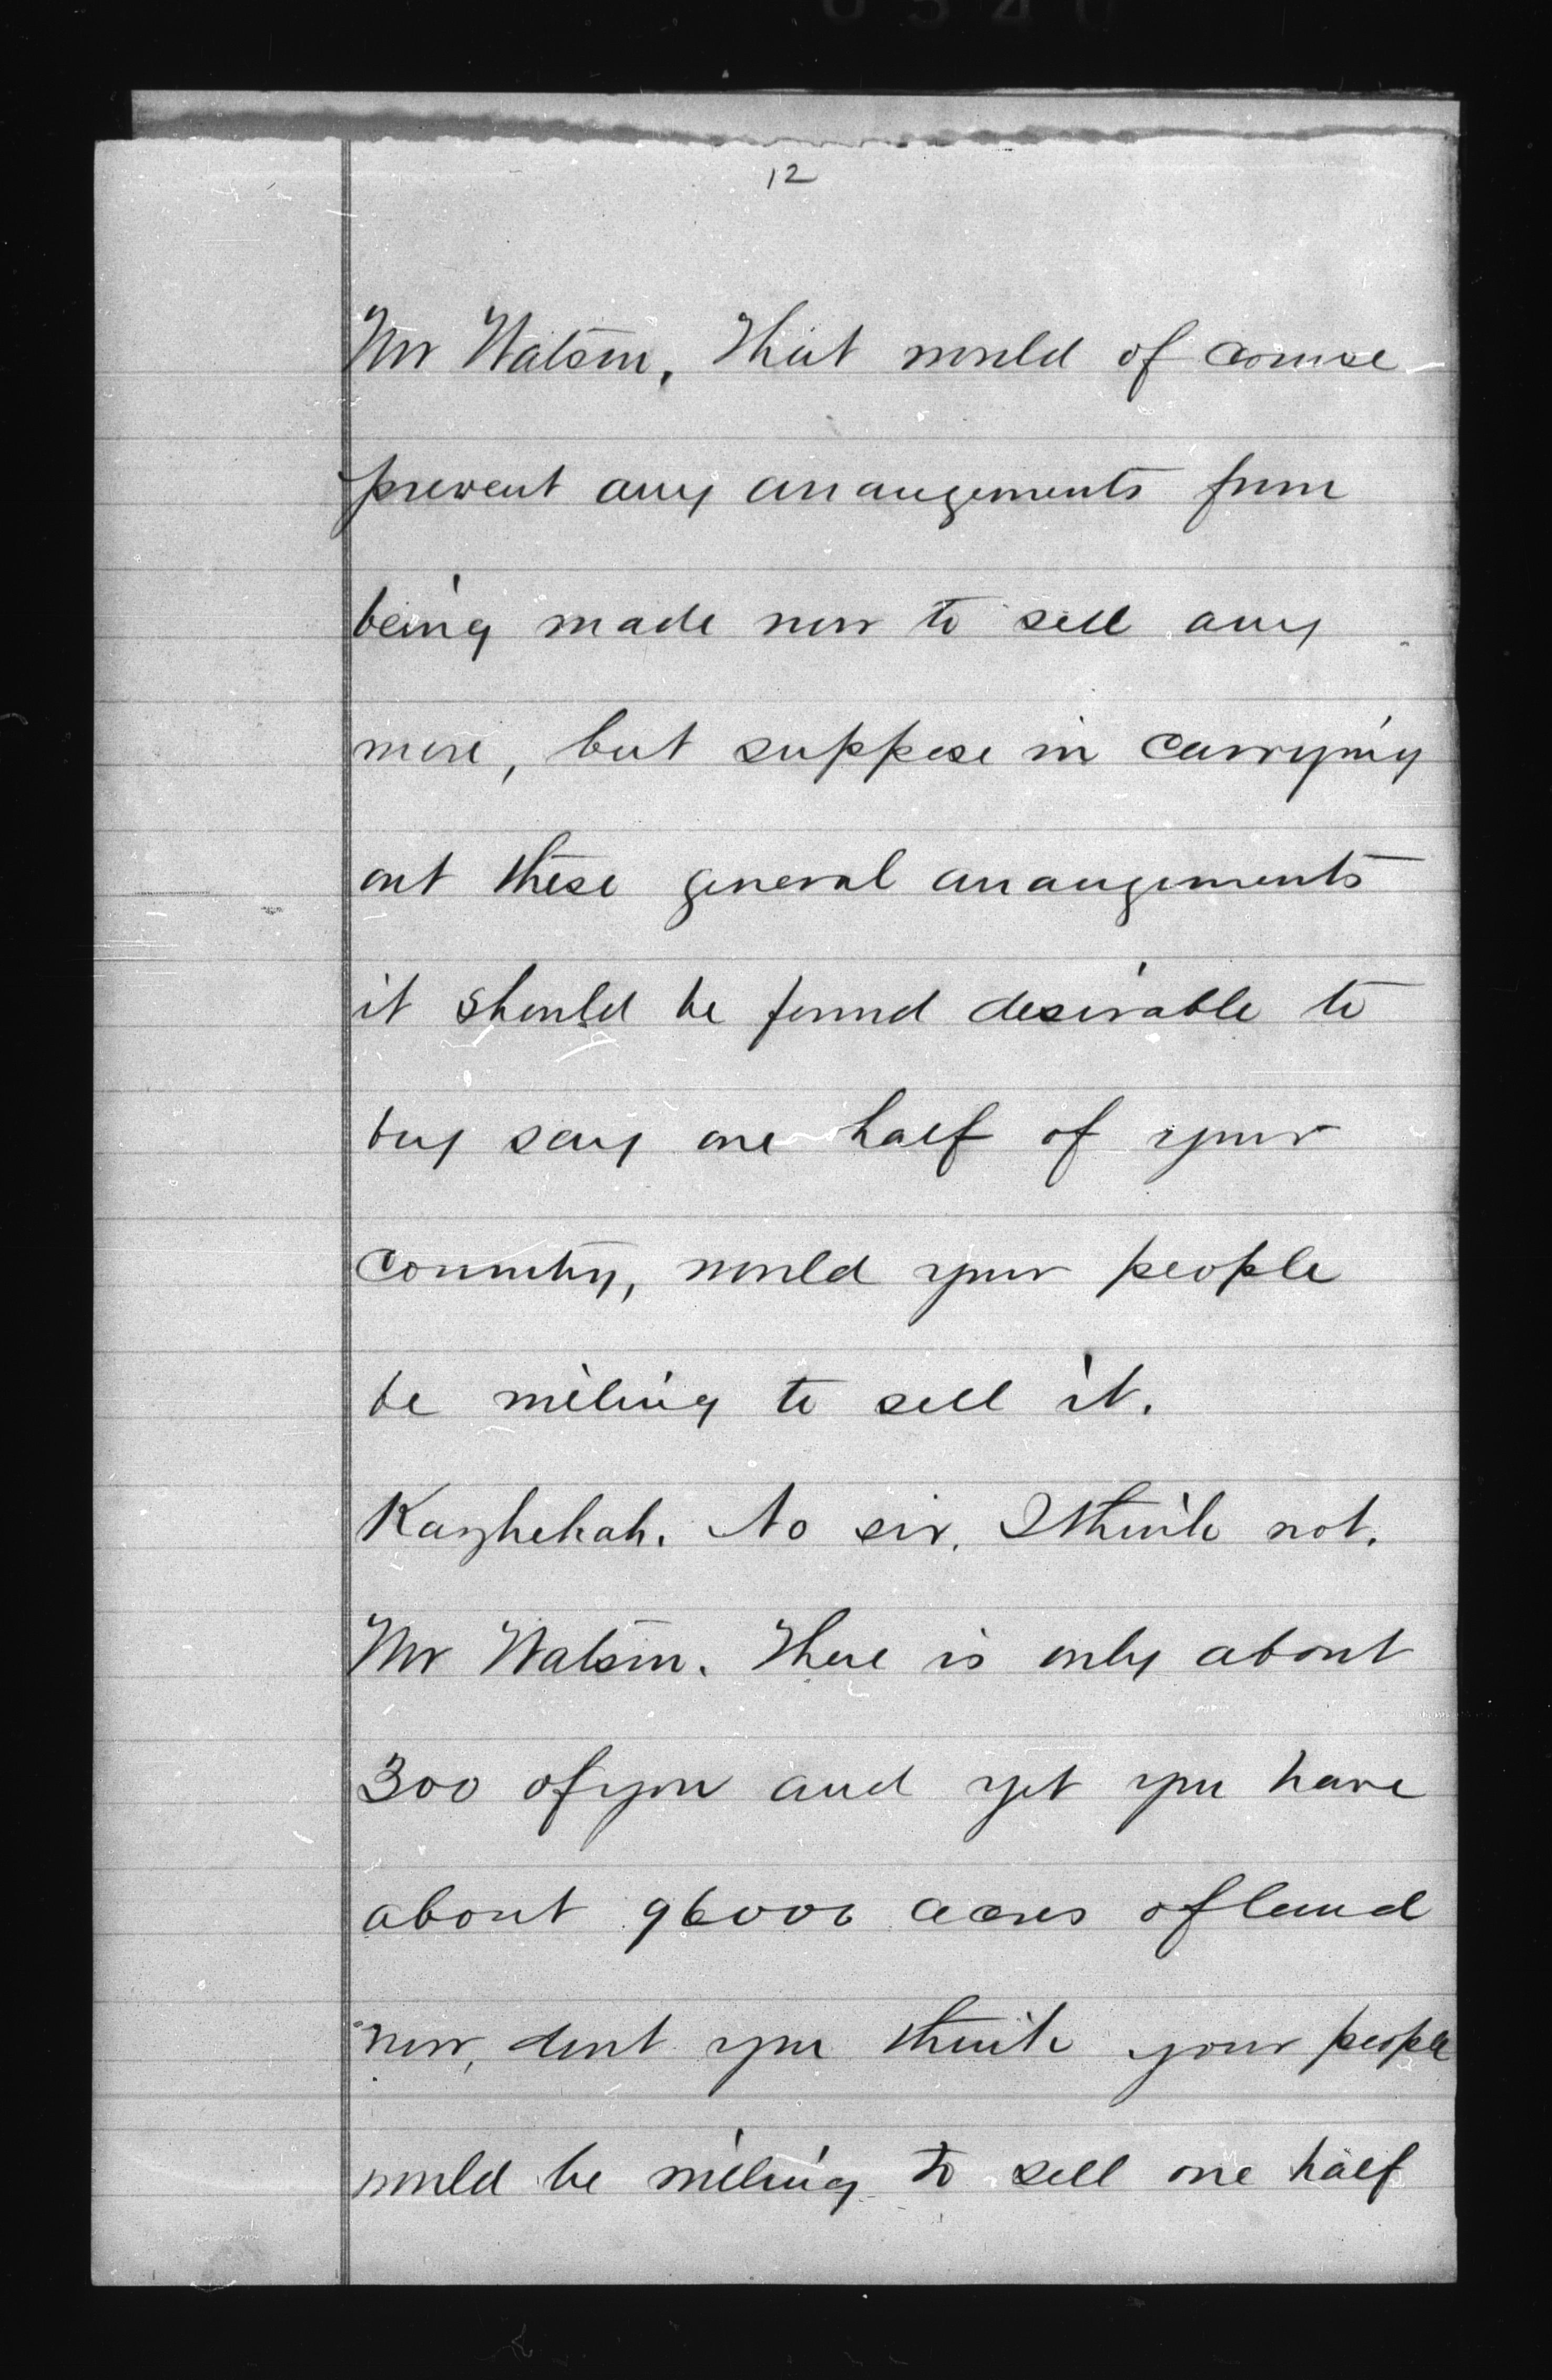 12
Mr Watson, That would of course
prevent any arrangements from
being made now to sell any
more, but suppose in carrying
out these general arrangements
it should be found desirable to
buy say one half of your
country, would your people
be willing to sell it.
Kayhekah. No sir. I think not.
Mr Watson. There is only about
300 of you and yet you have
about 96000 acres of land
now, dont you think your people
would be willing to sell one half